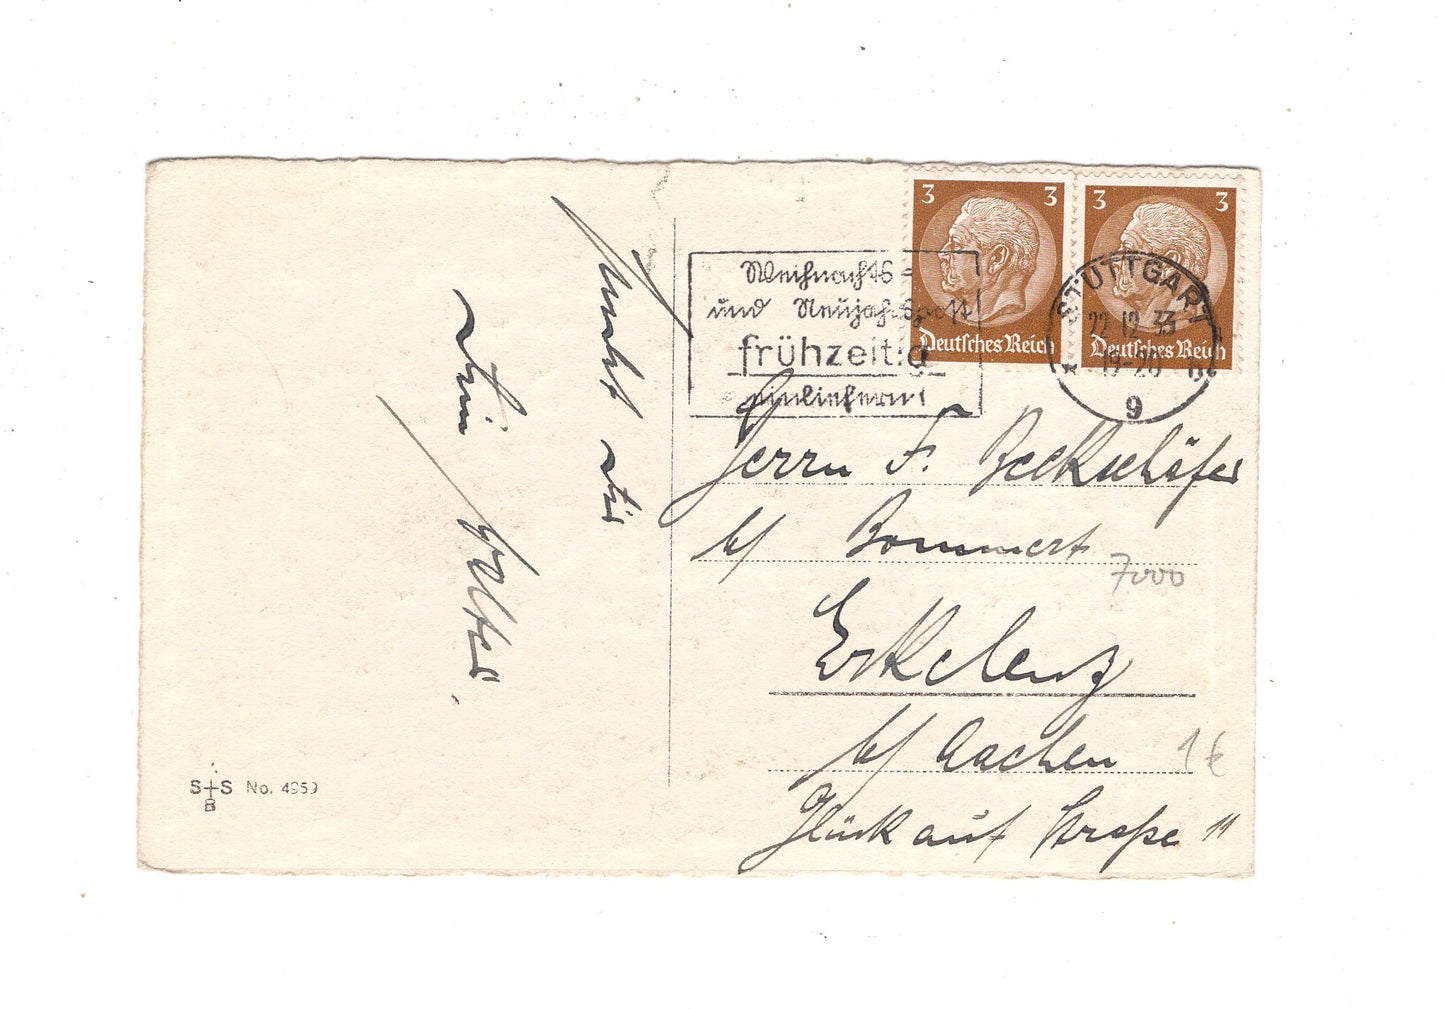 3 3
3 3
Deutsches Reich
Deutsches Reich
STUTTGART
22.12.33
19-20
9
Weihnachts-
und Neujahrspost
frühzeitig
einliefern!
Herrn F. Beckschäfer
b/ Bommert
7000
Erkelenz
b/ Aachen
1 €
Glückauf Straße 11
Dir
Dein
S+S No. 4959
B